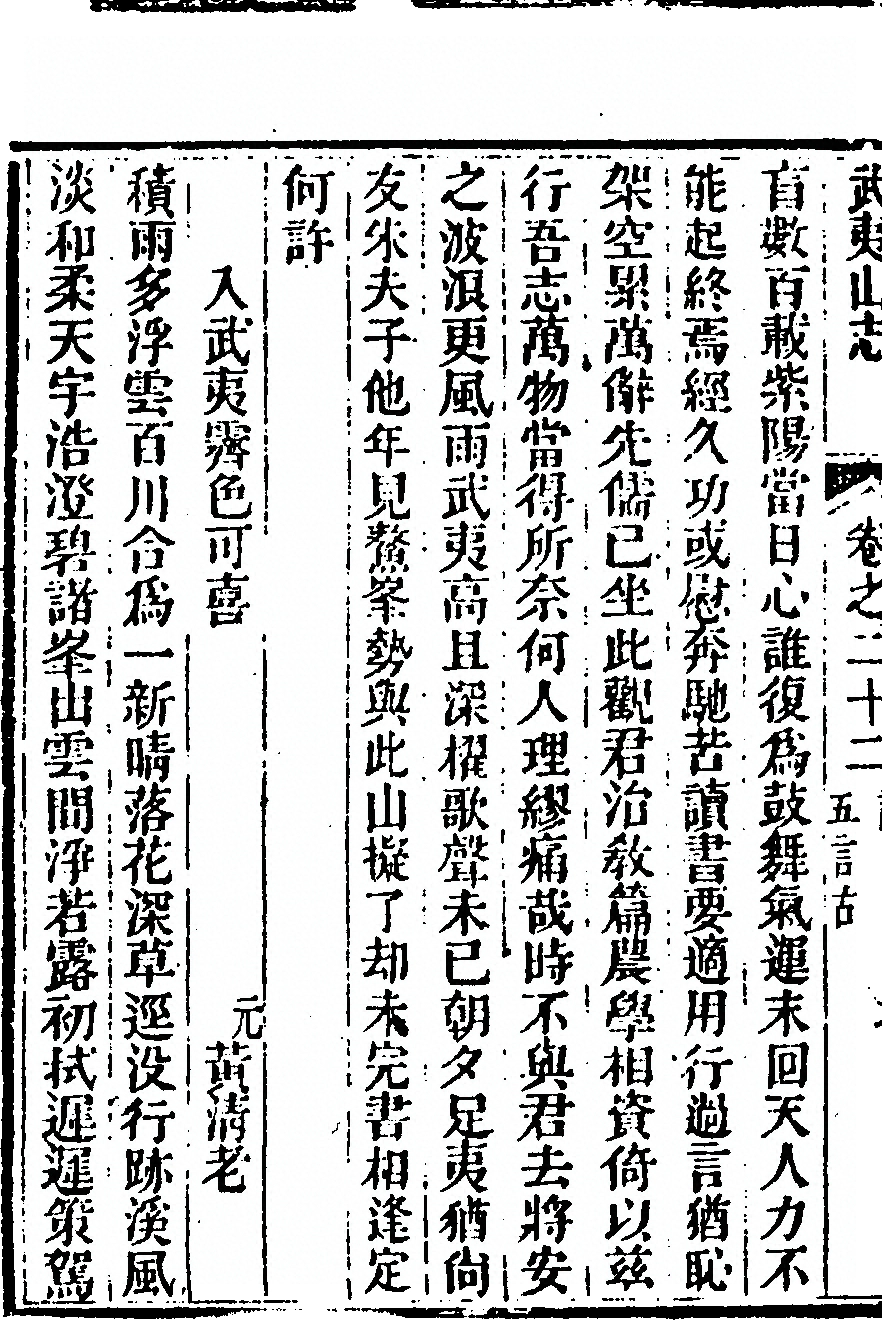 武夷山志
卷之二十二
五言古
盲數百載紫陽當日心誰復爲鼓舞氣運未回天人力不
能起終焉經久功或慰奔馳苦讀書要適用行過言猶恥
架空累萬僻先儒已坐此觀君治教篇農學相資倚以茲
行吾志萬物當得所奈何人理繆痛哉時不與君去將安
之波浪更風雨武夷高且深櫂歌聲未已朝夕足夷猶尙
友朱夫子他年見鰲峯勢與此山擬了却未完書相逢定
何許
入武夷霽色可喜
元黃清老
積雨多浮雲百川合爲一新晴落花深草逕没行跡溪風
淡和柔天宇浩澄碧諸峯出雲間淨若露初拭遲遲策駕